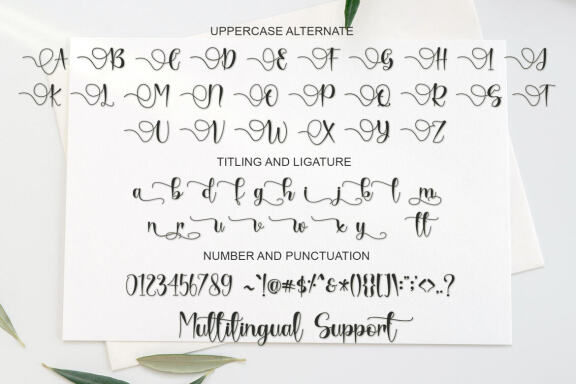 UPPERCASE ALTERNATE
A B C D E F G H I J
K L M N O P Q R S T
U V W X Y Z
TITLING AND LIGATURE
a b d f g h i j k l m
n r u v w x y tt
NUMBER AND PUNCTUATION
0123456789 ~`!@#$/^&*(){}[]\:";'<>,.?
Multilingual Support